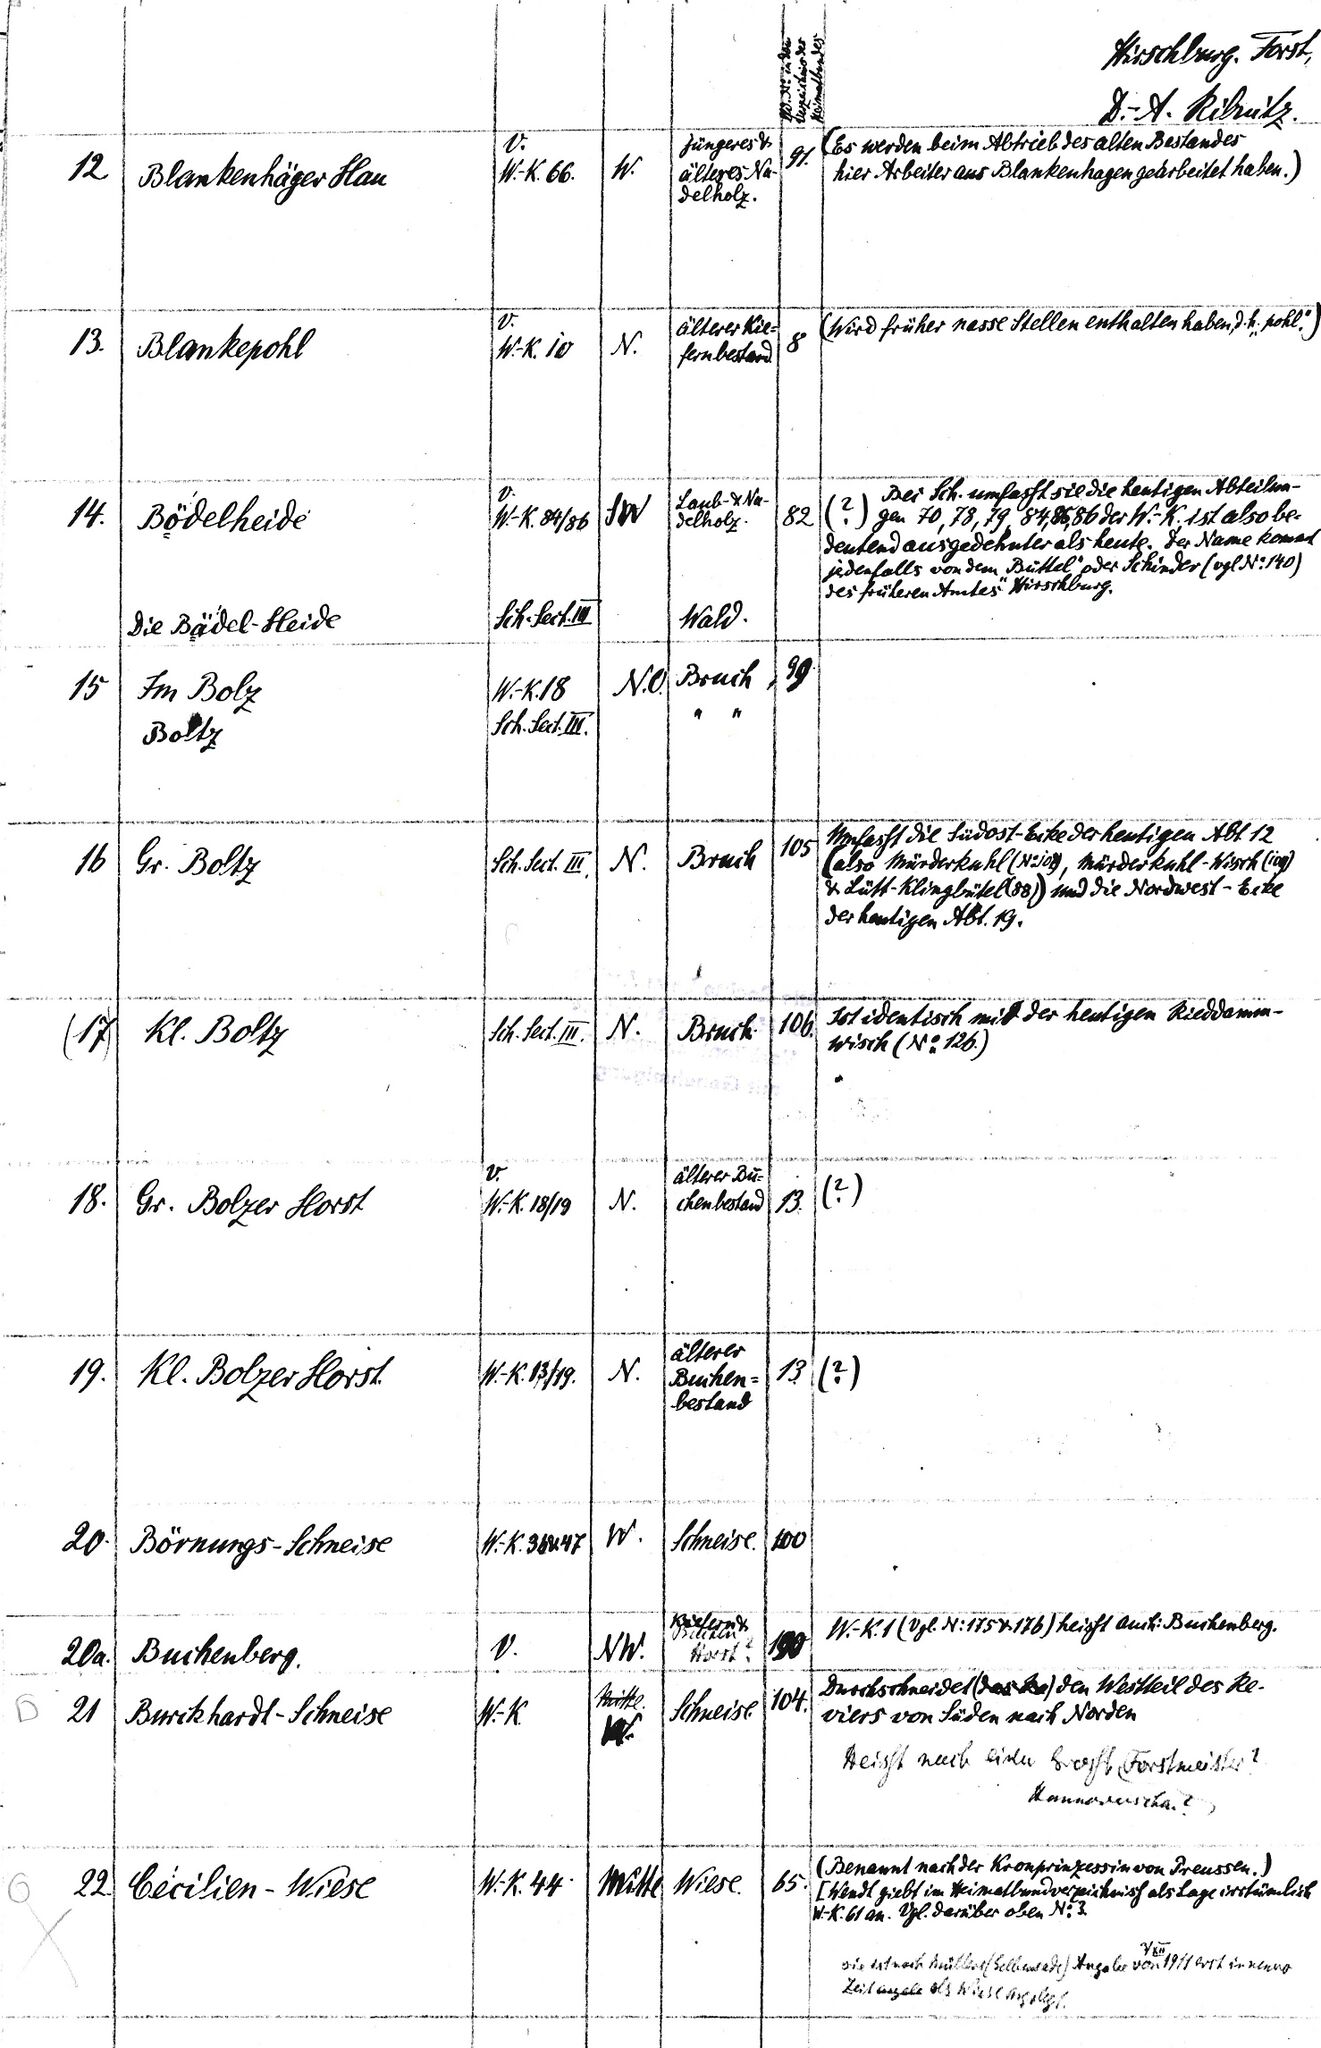 Hirschburg. Forst,
D.-A. Ribnitz.
Nº in dem
Verzeichnis des
Heimatbundes
12 Blankenhäger Hau V. W.-K. 66. W. jüngeres & älteres Na-
delholz. 91. (Es werden beim Abtrieb des alten Bestandes
hier Arbeiter aus Blankenhagen gearbeitet haben.)
13. Blankepohl V. W.-K. 10 N. älterer Kie-
fernbestand 8 (Wird früher nasse Stellen enthalten haben, d. h. „pohl".)
14. Bödelheide V. W.-K. 84/86 SW Laub- & Na-
delholz. 82 (?) Bei Sch. umfasst sie die heutigen Abteilun-
gen 70, 78, 79, 84, 85, 86 der W.-K., ist also be-
deutend ausgedehnter als heute. Der Name kommt
jedenfalls von dem „Büttel" oder Schinder (vgl. Nº 140)
des früheren Amtes Hirschburg.
Die Bädel-Heide Sch. Sect. III Wald.
15 Im Bolz W.-K. 18 N.O. Bruch 99
Boltz Sch. Sect. III. " "
16 Gr. Boltz Sch. Sect. III. N. Bruch 105 Umfasst die Südost-Ecke der heutigen Abt. 12
(also Mürderkuhl (Nº 108), Mürderkuhl-Wisch (109)
& Lütt-Klingbütel (88)) und die Nordwest-Ecke
der heutigen Abt. 19.
(17) Kl. Boltz Sch. Sect. III. N. Bruch. 106. Ist identisch mit der heutigen Rieddamm-
wisch (Nº 126.)
18. Gr. Bolzer Horst V. W.-K. 18/19 N. älterer Bu-
chenbestand 13. (?)
19. Kl. Bolzer Horst. W.-K. 13/19. N. älterer
Buchen=
bestand 13. (?)
20. Börnungs-Schneise W.-K. 38 & 47 W. Schneise. 100
20a. Buchenberg. V. NW. Kiefern &
Buchen
Horst? 190 W.-K. 1 (Vgl. Nº 175 & 176) heisst auch: Buchenberg.
21 Burckhardt-Schneise W.-K. Mitte. Schneise 104. Durchschneidet den Westteil des Re-
viers von Süden nach Norden
Heisst nach einem Forstmeister?
22 Cécilien-Wiese W.-K. 44 Mitte Wiese. 65. (Benannt nach der Kronprinzessin von Preussen.)
[Wendt giebt im Heimatbundverzeichniss als Lage irrtümlich
W.-K. 61 an. Vgl. darüber oben Nº 3.
sie ist nach Müllers (Gelbensande) Angabe von 1911 erst in neuer
Zeit als Wiese angelegt.